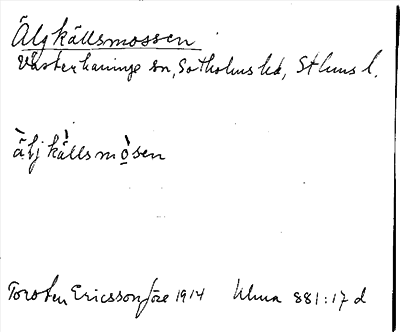 Älgkällsmossen
Västerhaninge sn, Sotholms hd, Sthms l.
ä̀lj kä̀llsmò̤sen
Torsten Ericsson före 1914 Ulma 881:17 d